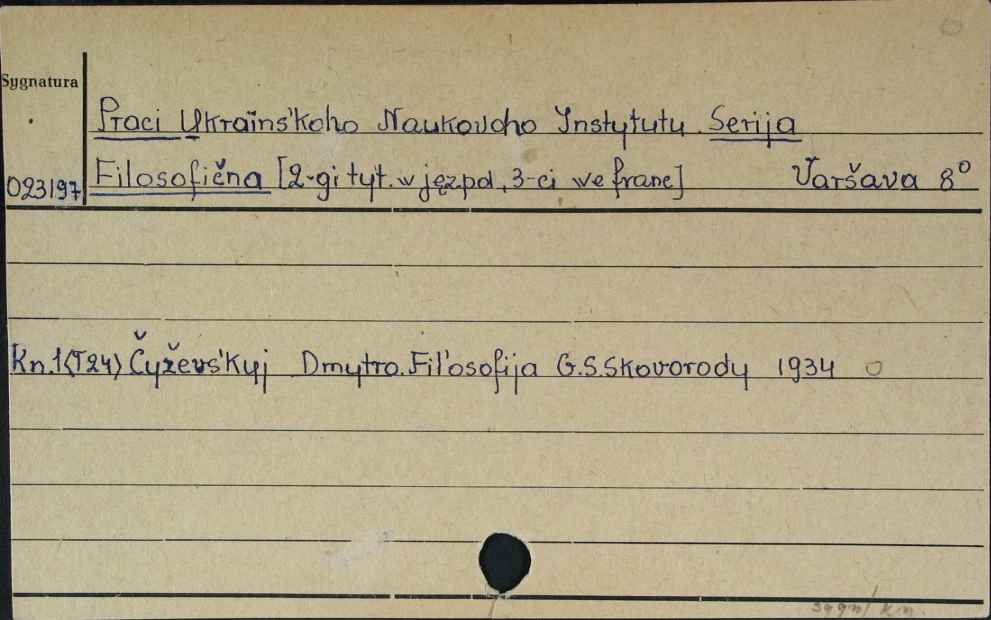 Sygnatura
Praci Ukraïns'koho Naukovoho Instytutu. Serija
023197 Filosofična [2-gi tyt. w jęz.pol., 3-ci we franc] Varšava 8°
Kn.1(T24) Čyževs'kyj Dmytro. Fil'osofija G.S.Skovorody 1934
sygn/ kn.